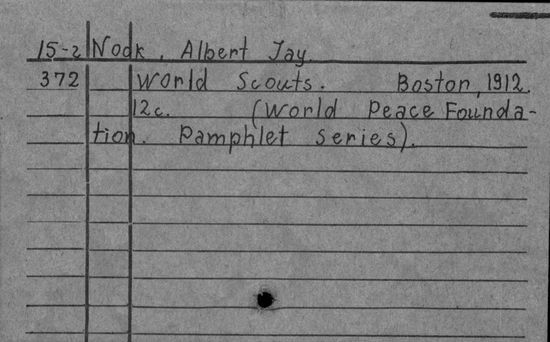 15-2 Nock, Albert Jay.
372 World Scouts. Boston, 1912.
12c. (World Peace Founda-
tion. Pamphlet series).